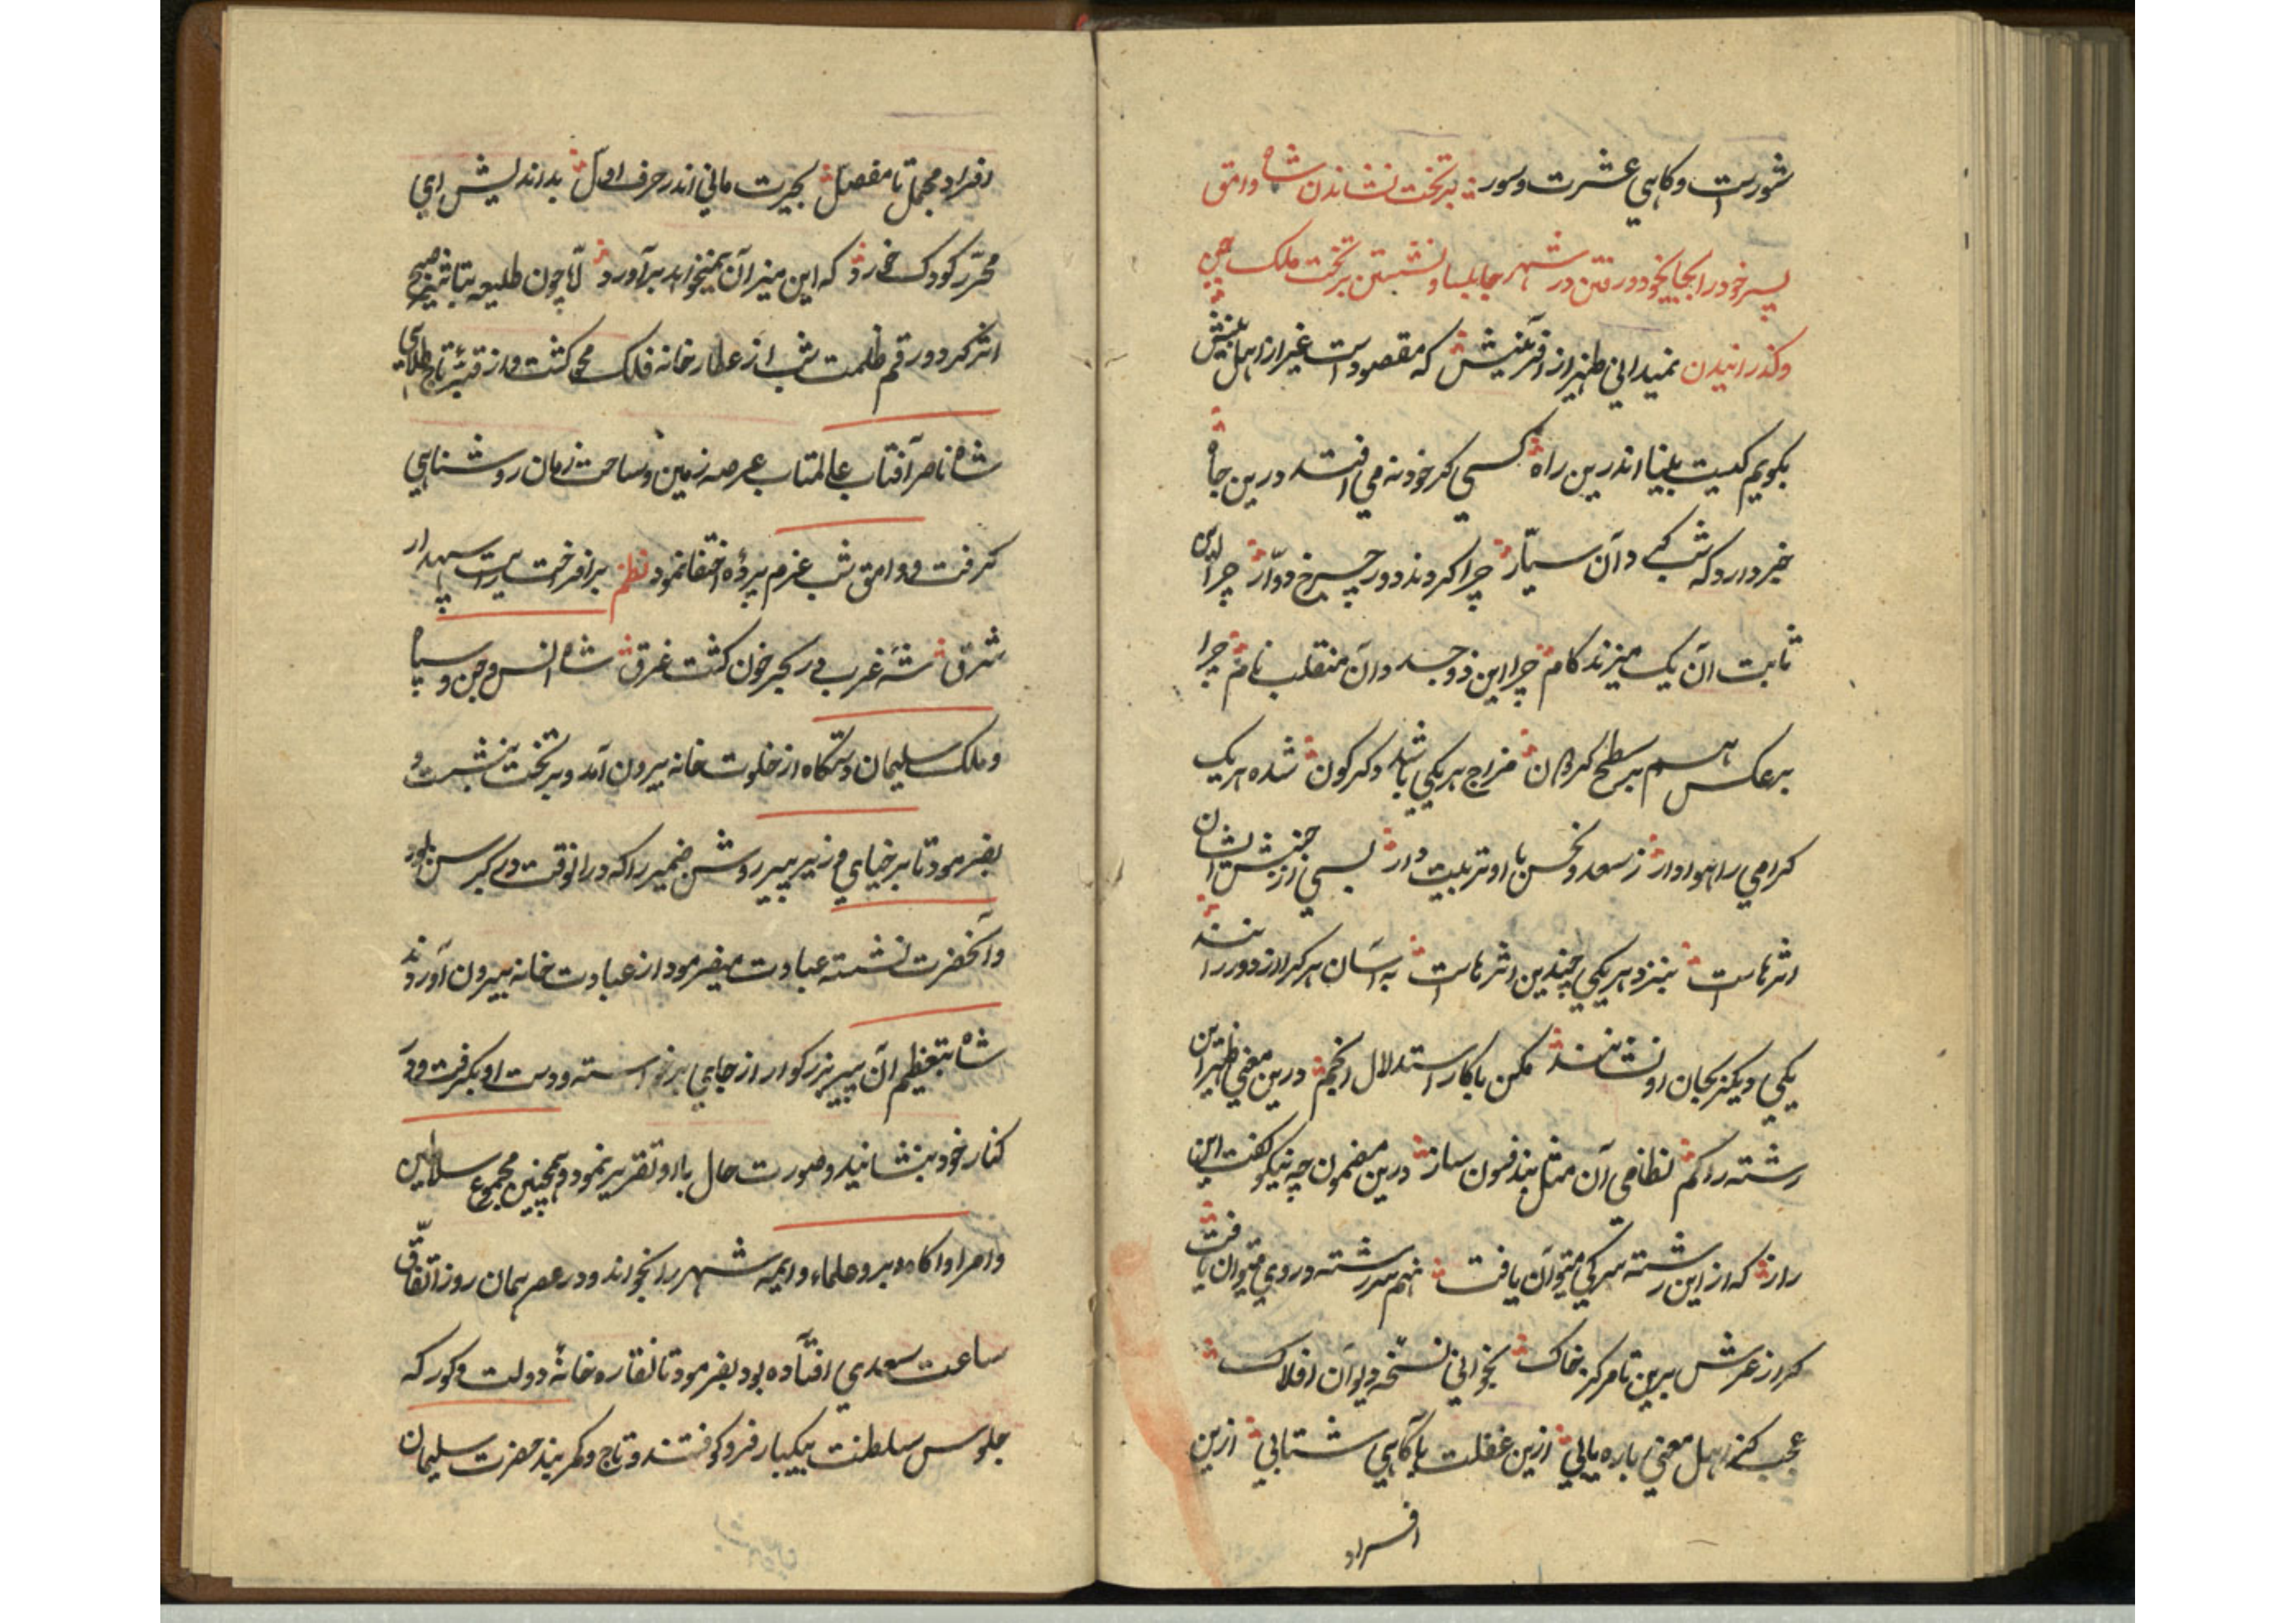 شورست و کاهی عشرت و سور بر تخت نشاندن شاه وامق
پسر خود را بجای خود و رفتن در شهر جابلسا و نشستن بر تخت ملک جن
و گذرانیدن نمیدانی ظهیر از آفرینش که مقصودست غیر از اهل بینش
بکویم کیست بینا اندرین راه کسی کز خود نمی افتد درین چاه
خبر دارد که شب کی و آن سیار چرا کردند دور چرخ دوار چرا این
ثابت آن یک میزند کام چرا این ذو جسد و آن منقلب نام چرا
برعکس هم بر سطح کردان مزاج هر یکی باشد دکرکون شده هر یک
کرامی راهوادار ز سعد و نحس با او تربیت دار بسی از جنبش ایشان
اثرهاست بنزد هر یکی چندین اثرهاست به آسان هر کرا از دور رانند
یکی دیکر بجای او نشانند مکن با کار استدلال انجم درین معنی ظهیرا این
رشته را کم نظامی آن مثل بند فسون ساز درین مضمون چه نیکو گفت این
راز که از این رشته سر کی میتوان یافت نه هم سر رشته و روی میتوان یافت
کر از عرش برین تا مرکز خاک بخوانی نسخه دیوان افلاک
عجب کز اهل معنی باره یابی ازین غفلت بآکاهی شتابی ازین
افراد
افراد مجمل تا مفصل بحیرت مانی اندر حرف اول بداندیش ای
محرر کودک خرد که این میزان نمیخواهد برآورد تا چون طلیعه تباشیر صبح
اثر کرد و رقم ظلمت شب از عطارخانه فلک محو کشت و از قبه تاج طلای
شاه ناصر آفتاب عالمتاب عرصه زمین و ساحت زمان روشنایی
کرفت و وامق شب عزم پرده اختفا نمود نظم برافراخت رایت سپهدار
شرق شه غرب در بحر خون کشت غرق شاه انس و جن و سپاه
و ملک سلیمان دستکاه از خلوت خانه بیرون آمد و بر تخت بنشست و
بفرمود تا برخیای وزیر پیر روشن ضمیر را که در انوقت در کبر سن بود
و آنحضرت نشسته عبادت میفرمود از عبادت خانه بیرون آوردند
شاه بتعظیم آن پیر بزرکوار از جای برخواسته و دست او بکرفت و در
کنار خود بنشانید و صورت حال با او تقریر نمود و همچنین مجموع سلاطین
و امرا و اکابر و علماء و ایمه شهر را بخواند و در عصر همان روز اتفاق
ساعت سعدی افتاده بود بفرمود تا نقاره خانه دولت و کورکه
جلوس سلطنت بیکبار فرو کوفتند و تاج و کمربند حضرت سلیمان